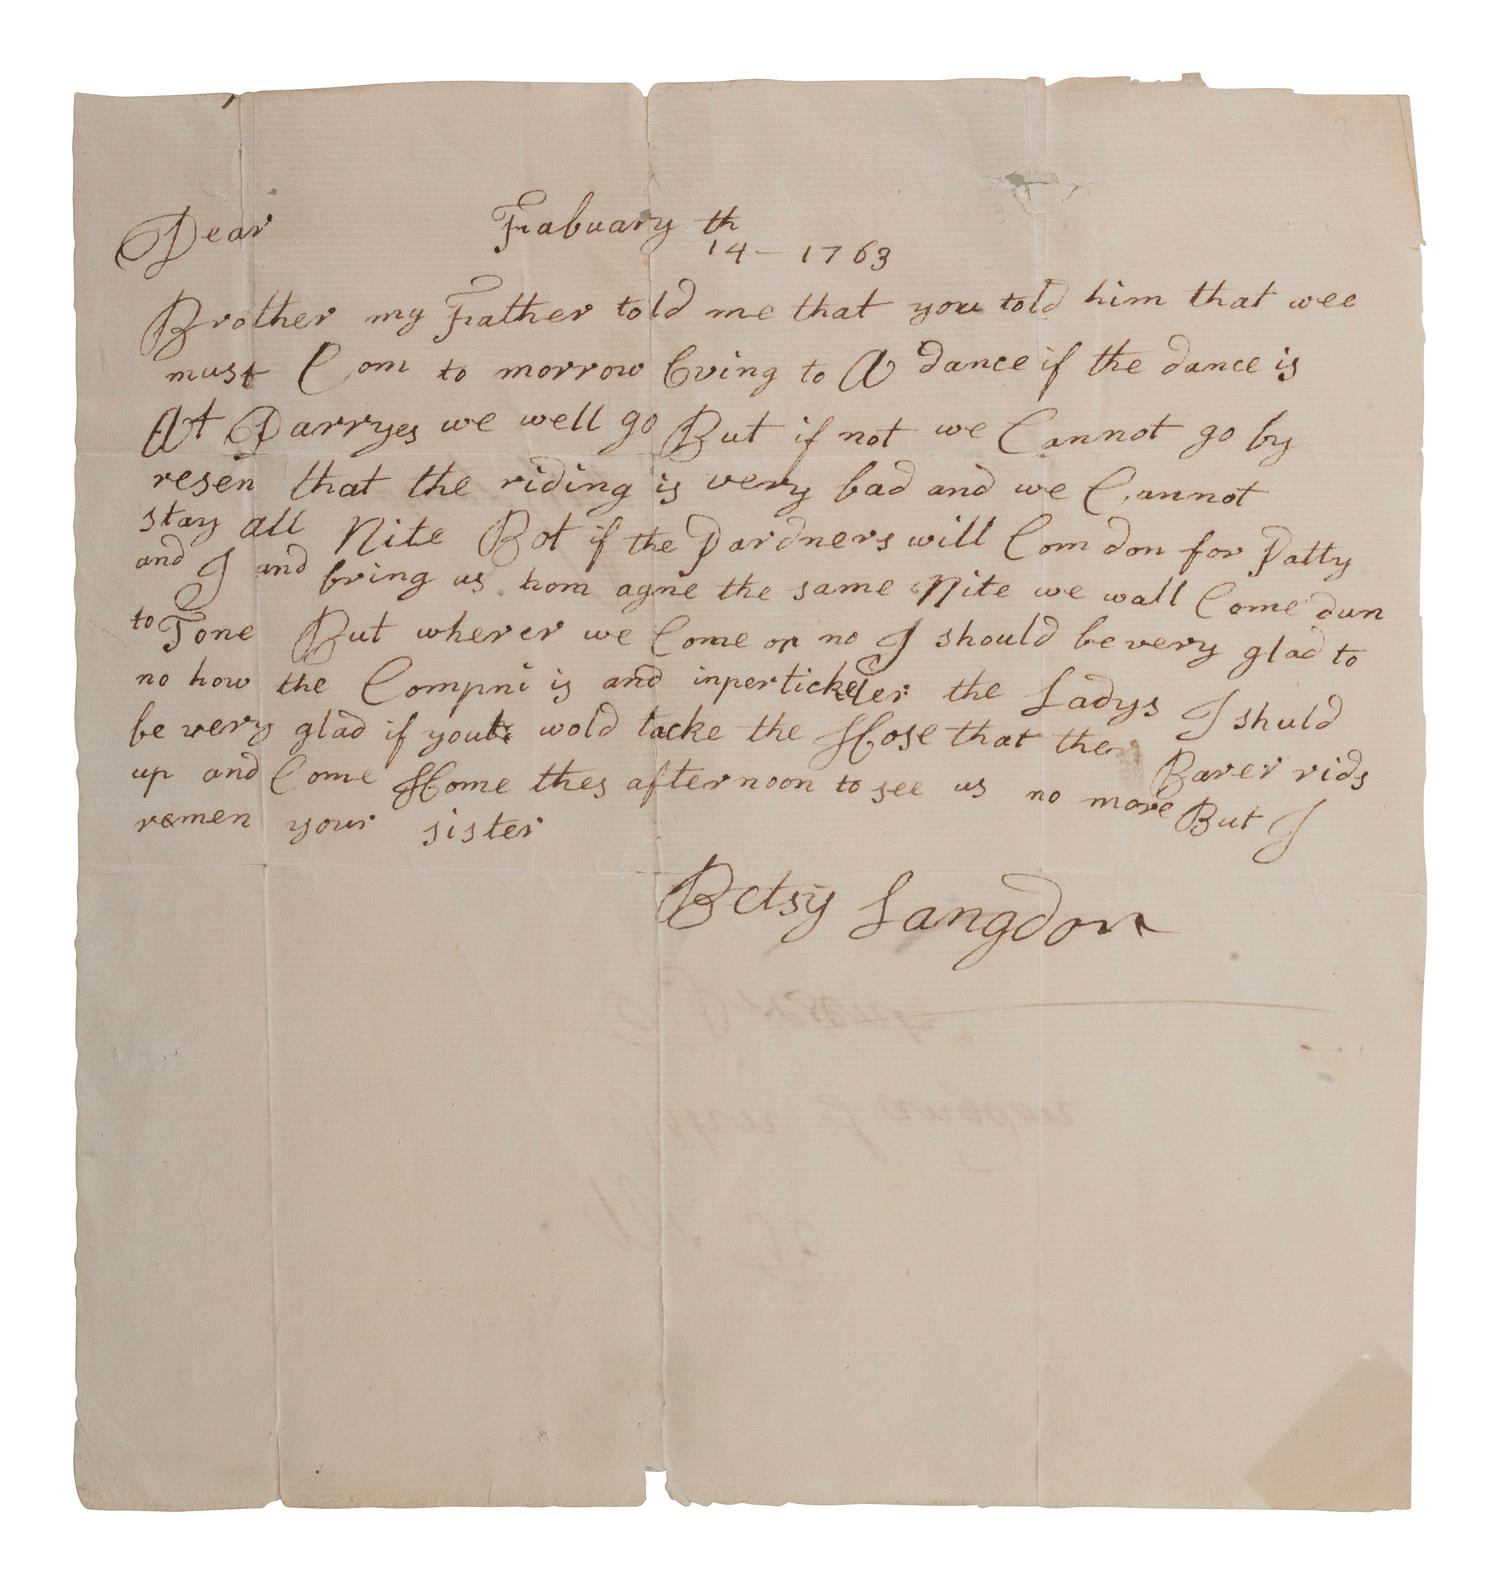 Dear Frabuary th
14 - 1763
Brother my Frather told me that you told him that wee
must Com to morrow Eving to A dance if the dance is
At Parryes we well go But if not we Cannot go by
resen that the riding is very bad and we Cannot
stay all Nite Bot if the Pardners will Com don for Patty
and I and bring us hom agne the same Nite we wall Come dun
to Tone But wherer we Come or no I should be very glad to
no how the Compni is and inpertickeler the Ladys I shuld
be very glad if you wold tacke the Hose that the Barer rids
up and Come Home thes afternoon to see us no more But I
remen your sister
Betsy Langdon